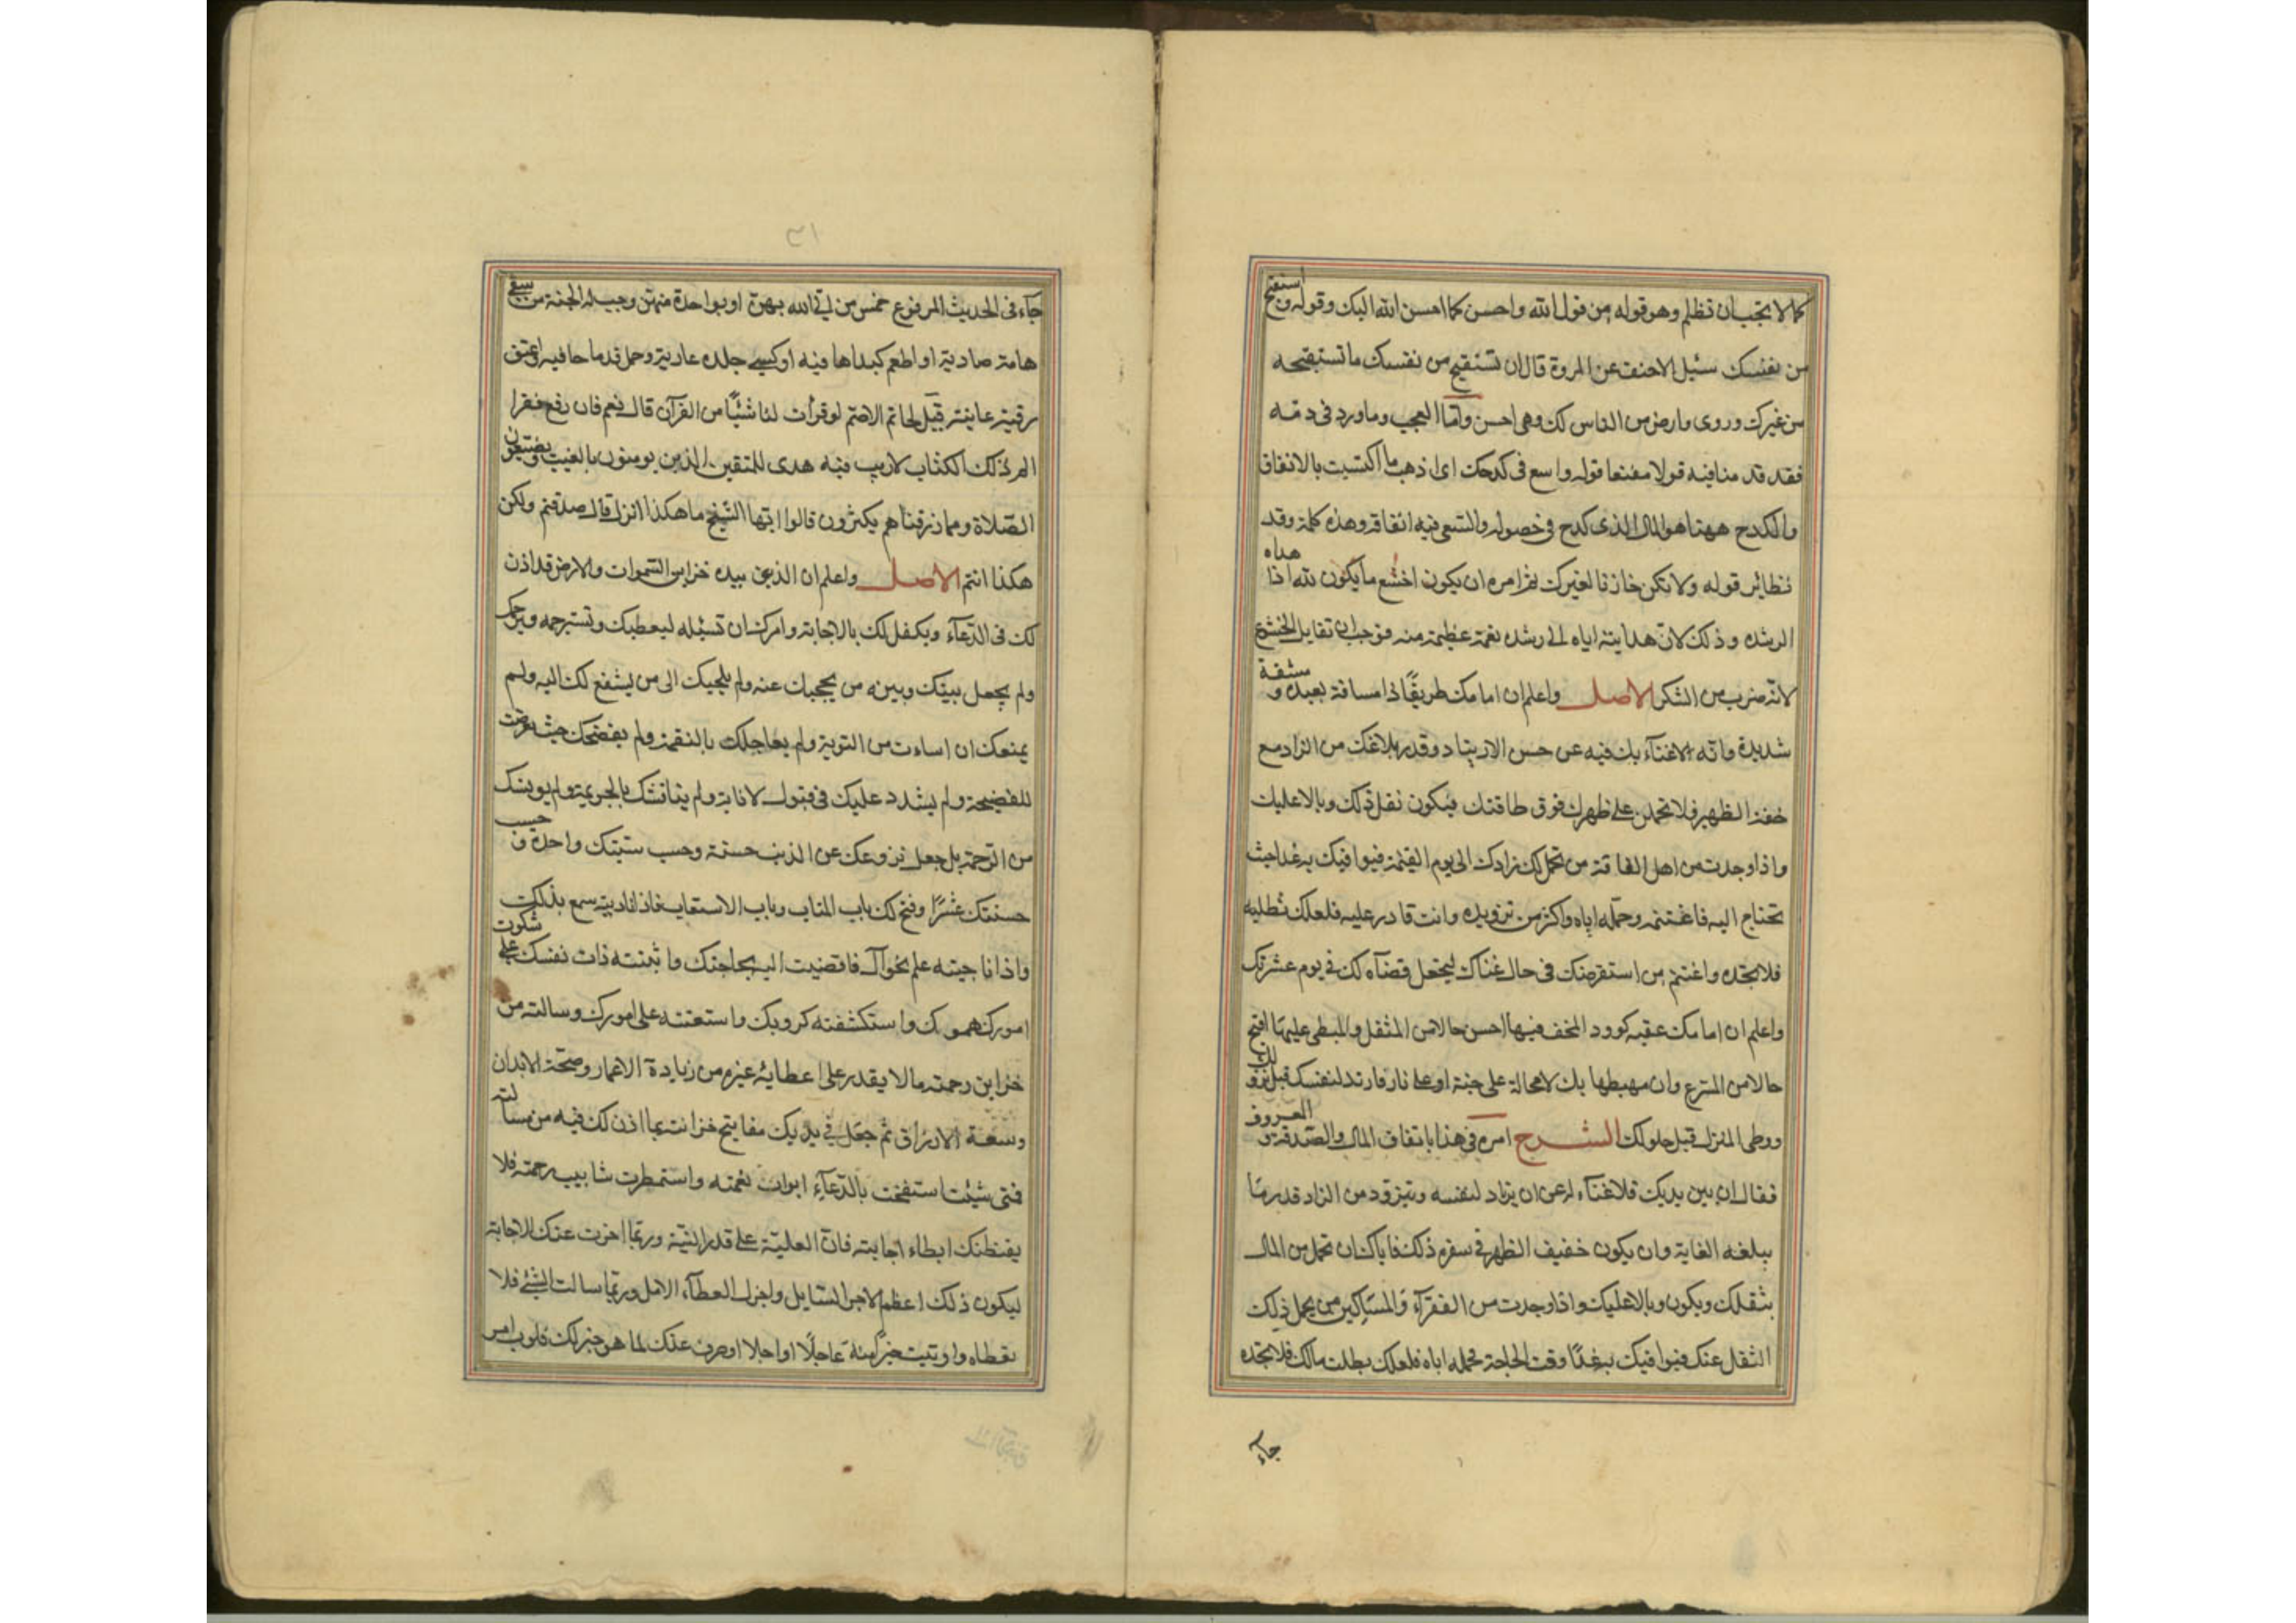 كما لا تحب ان تظلم وهو قوله من قول الله واحسن كما احسن الله اليك وقوله واستقبح
من نفسك سئل الاحنف عن المروة قال ان تستقبح من نفسك ما تستقبحه
من غيرك وروى وارض من الناس لك وهى احسن وامّا العجب وما ورد فى ذمّه
فقد قدمنا فيه قولا مقنعا قوله واسع فى كدحك اى اذهب ما اكتسبت بالانفاق
والكدح ههنا هو المال الذى كدح فى حصوله والسّعى فيه انفاقه وهذه كلمة وقد
نظائر قوله ولا تكن خازنا لغيرك ثم امره ان يكون اخشع ما يكون لله اذا هداه
الرشده وذلك لانّ هدايته اياه الى رشده نعمة عظيمة منه فوجب ان تقابل الخشوع
لانّه ضرب من الشكر الاصل واعلم ان امامك طريقًا ذا مسافة بعيدة و مشقة
شديدة وانّه لا غناء بك فيه عن حسن الارتياد وقدر بلاغك من الزاد مع
خفة الظهر فلا تحملن على ظهرك فوق طاقتك فيكون ثقل ذلك وبالا عليك
واذا وجدت من اهل الفاقة من تحمل لك زادك الى يوم القيمة فيوافيك به غدا حيث
تحتاج اليه فاغتنمه وحمّله اياه واكثر من تزويده وانت قادر عليه فلعلك تطلبه
فلا تجده واغتنم من استقرضك فى حال غناك ليجعل قضآه لك فى يوم عشرتك
واعلم ان امامك عقبه كوود المخف فيها احسن حالا من المثقل والمبطى عليها اقبح
حالا من المسرع وان مهبطها بك لا محالة على جنة او على نار فارتد لنفسك قبل نزولك
ووطى المنزل قبل حلولك الشرح امره فى هذا بانفاق المال والصّدقة و المعروف
فقال ان بين يديك فلا غنآء له عن ان يزاد لنفسه ويتزود من الزاد قدر ما
يبلغه الغاية وان يكون خفيف الظهر فى سفره ذلك فاياك ان تحمل من المال
بثقلك ويكون وبالا عليك واذا وجدت من الفقرآء والمساكين من يحمل ذلك
الثقل عنك فيوافيك به غدًا وقت الحاجة فحمله اياه فلعلك بطلت مالك فلا تجده
جآء
٣١
جآء فى الحديث المرفوع خمس من لقى الله بهنّ او بواحدة منهنّ وجب له الجنة من سقى
هامة صادية او اطعم كبدا هافيه او كسى جلده عارية وحمل قدما حافيه او عتق
رقبة عانية قيل لحاتم الاصمّ لو قرأت لنا شيئًا من القرآن قال نعم فان رفع فقرا
الم ذلك الكتاب لا ريب فيه هدى للمتقين الذين يومنون بالغيب ويقيمون
الصّلاة ومما رزقناهم يكنزون قالوا ايها الشيخ ما هكذا انزل قال صدقتم ولكن
هكذا انتم الاصل واعلم ان الذى بيده خزاين السّموات والارض قد اذن
لك فى الدّعآء وتكفل لك بالاجابة وامرك ان تسئله ليعطيك وتسترحمه ويرحمك
ولم يجعل بينك وبينه من يحجبك عنه ولم يلجيك الى من يشفع لك اليه ولم
يمنعك ان اسأت من التوبة ولم يعاجلك بالنقمة ولم يفضحك حيث تعرضت
للفضيحة ولم يشدد عليك فى قبول الانابة ولم يناقشك بالجريمة ولم يويسك
من الرّحمة بل جعل نزوعك عن الذنب حسنة وحسب سيّئتك واحدة و حسب
حسنتك عشرًا وفتح لك باب المتاب وباب الاستعتاب فاذا ناديته سمع بذلك
واذا ناجيته علم نجواك فافضيت اليه بحاجتك وابثثته ذات نفسك شكوت على
امورك همومك واستكشفته كروبك واستعنته على امورك وسالته من
خزاين رحمته ما لا يقدر على اعطائه غيره من زيادة الاعمار وصحّة الابدان
وسعة الارزاق ثم جعل فى يديك مفاتيح خزانته بما اذن لك فيه من مسألته
فمتى شئت استفتحت بالدّعآء ابواب نعمته واستمطرت شابيب رحمته فلا
يقنطنك ابطاء اجابته فانّ العطيّة على قدر النيّة وربّما اخرت عنك الاجابة
ليكون ذلك اعظم لاجر السّايل واجزل العطآء الامل وربّما سالت الشئ فلا
تعطاه واوتيت خيرًا منه عاجلًا او اجلا او صرف عنك لما هو خير لك فلرب امر